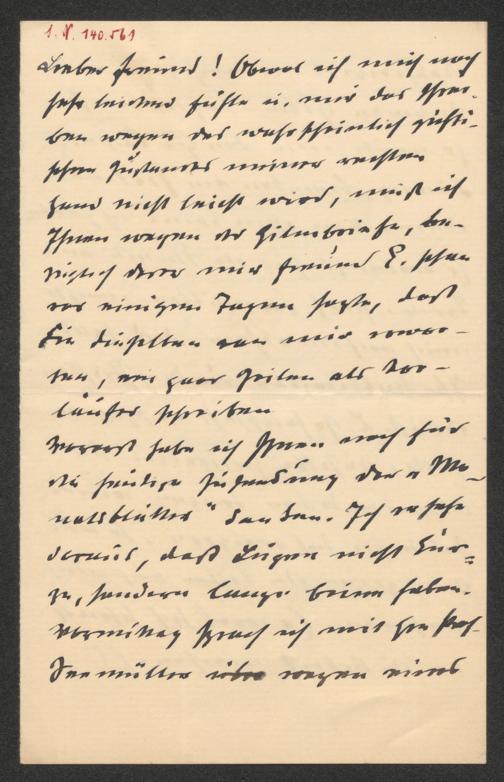 I. N. 140.561
Lieber Freund! Obwol ich mich noch
sehr leidend fühle u. mir das Schrei-
ben wegen des wahrscheinlich gichti-
schen Zustandes meiner rechten
Hand nicht leicht wird, muß ich
Ihnen wegen der Gilmbriefe, be-
züglich derer mir Freund E. schon
vor einigen Tagen sagte, daß
Sie dieselben von mir erwar-
ten, ein paar Zeilen als Vor-
läufer schreiben
Vorerst habe ich Ihnen noch für
die Zusendung der "Mo-
natsblätter" danken. Ich ersehe
daraus, daß Lügen nicht kur-
ze, sondern lange Beine haben.
Vormittag sprach ich mit Hrn Prof.
Seemüller wegen eines